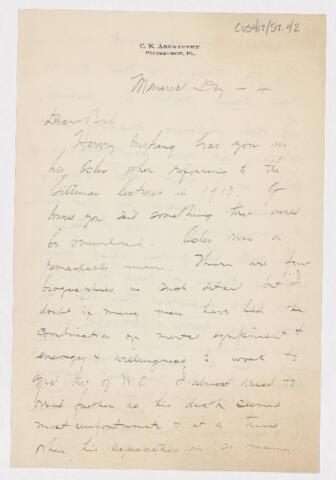 CUSH/17/57.42
C. N. Abernethy
Pittsburgh, Pa.
Memorial Day - 4
Dear Bob
Harvey Cushing has you in
his Osler when referring to the
Silliman lectures in 1913. Of
course you said something that
be remembered. Osler was a
remarkable man. There are few
biographies in such detail but I
doubt if many men have had the
combination of mental equipment &
energy & willingness to work to
that of W.O. I almost
read further as his death seemed
most unfortunate & at a time
when his capacities in so many